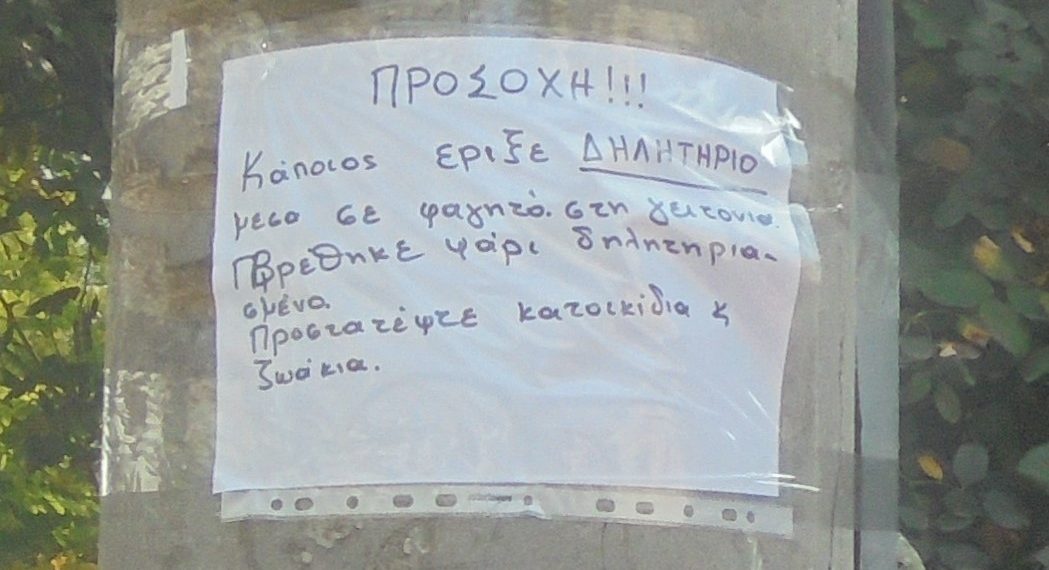 ΠΡΟΣΟΧΗ!!!
Κάποιος εριξε ΔΗΛΗΤΗΡΙΟ
μεσα σε φαγητό. στη γειτονια.
Βρέθηκε ψάρι δηλητηρια-
σμένο.
Προστατέψτε κατοικίδια κ
ζωάκια.